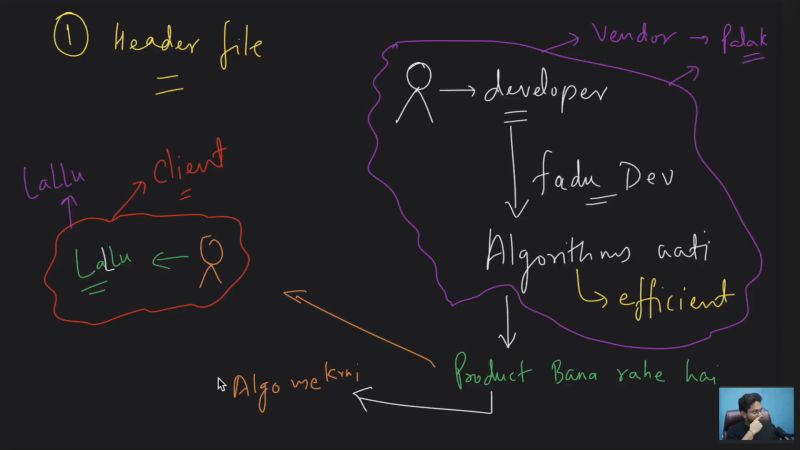 ① Header file
Vendor → Palak
developer
fadu Dev
Algorithms aati
efficient
Lallu
Client
Lallu
Product Bana rahe hai
Algo me